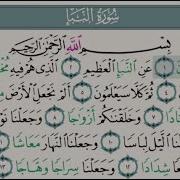 سُورَةُ النَّبَإِ
بِسْمِ اللَّهِ الرَّحْمَٰنِ الرَّحِيمِ
عَنِ النَّبَإِ الْعَظِيمِ ٢ الَّذِي هُمْ فِيهِ
كَلَّا سَيَعْلَمُونَ ٥ أَلَمْ نَجْعَلِ الْأَرْضَ
وَخَلَقْنَٰكُمْ أَزْوَٰجًا ٨ وَجَعَلْنَا
الَّيْلَ لِبَاسًا ١٠ وَجَعَلْنَا النَّهَارَ مَعَاشًا
شِدَادًا ١٢ وَجَعَلْنَا سِرَاجًا وَهَّاجًا